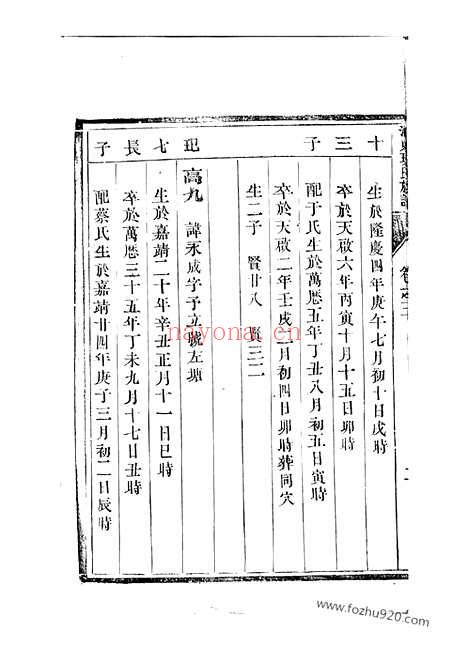 十三子
生於隆慶四年庚午七月初十日戌時
卒於天啟六年丙寅十月十五日卯時
配于氏生於萬厯五年丁丑八月初五日寅時
卒於天啟二年壬戌二月初四日卯時葬同穴
生二子 賢廿八 賢三二
玘七長子
高九 諱永成字予立號左塘
生於嘉靖二十年辛丑正月十一日巳時
卒於萬厯三十五年丁未九月十七日丑時
配蔡氏生於嘉靖廿四年庚子三月初二日辰時
nayona.cn
www.fozhu920.com